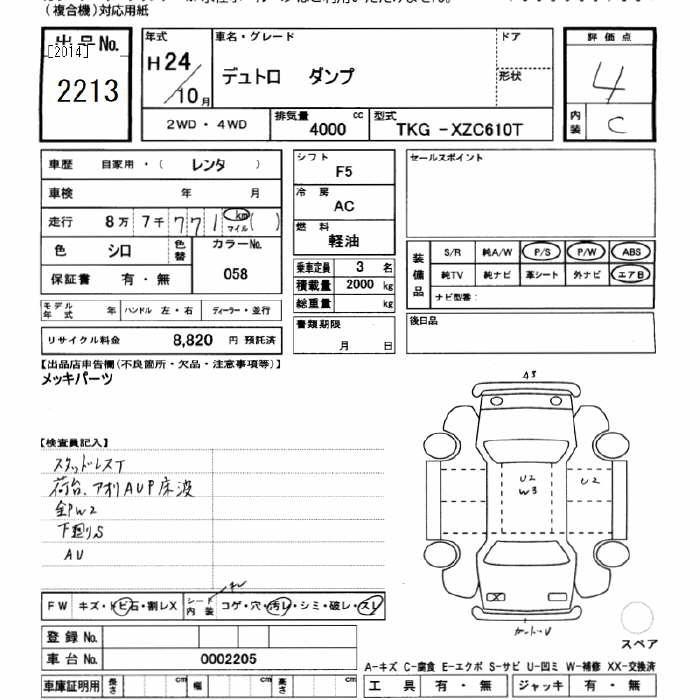 (複合機)対応用紙
出品No.
[2014]
2213
年式
H24/10月
車名・グレード
デュトロ ダンプ
ドア
形状
評価点
4
内装 C
2WD・4WD
排気量 4000 cc
型式 TKG -XZC610T
車歴 自家用・( レンタ )
車検 年 月
走行 8万 7千 7 7 1 km マイル ( )
色 シロ 色替
カラーNo. 058
保証書 有・無
モデル年式 年 ハンドル 左・右 ディーラー・並行
リサイクル料金 8,820 円 預託済
シフト F5
冷房 AC
燃料 軽油
乗車定員 3 名
積載量 2000 kg
総重量 kg
書類期限 月 日
セールスポイント
装備品
S/R 純A/W P/S P/W ABS
純TV 純ナビ 革シート 外ナビ エアB
ナビ型番:
後日品
【出品店申告欄(不良箇所・欠品・注意事項等)】
メッキパーツ
【検査員記入】
スタッドレスT
荷台、アオリAUP床波
全PW2
下廻りS
AU
AS
U2
W3
U2
ゲートーU
スペア
FW キズ・トビ石・割レX
シート内装 コゲ・穴・汚レ・シミ・破レ・スレ
登録No.
車台No. 0002205
車庫証明用 長さ cm 幅 cm 高さ cm
A-キズ C-腐食 E-エクボ S-サビ U-凹ミ W-補修 XX-交換済
工具 有・無 ジャッキ 有・無